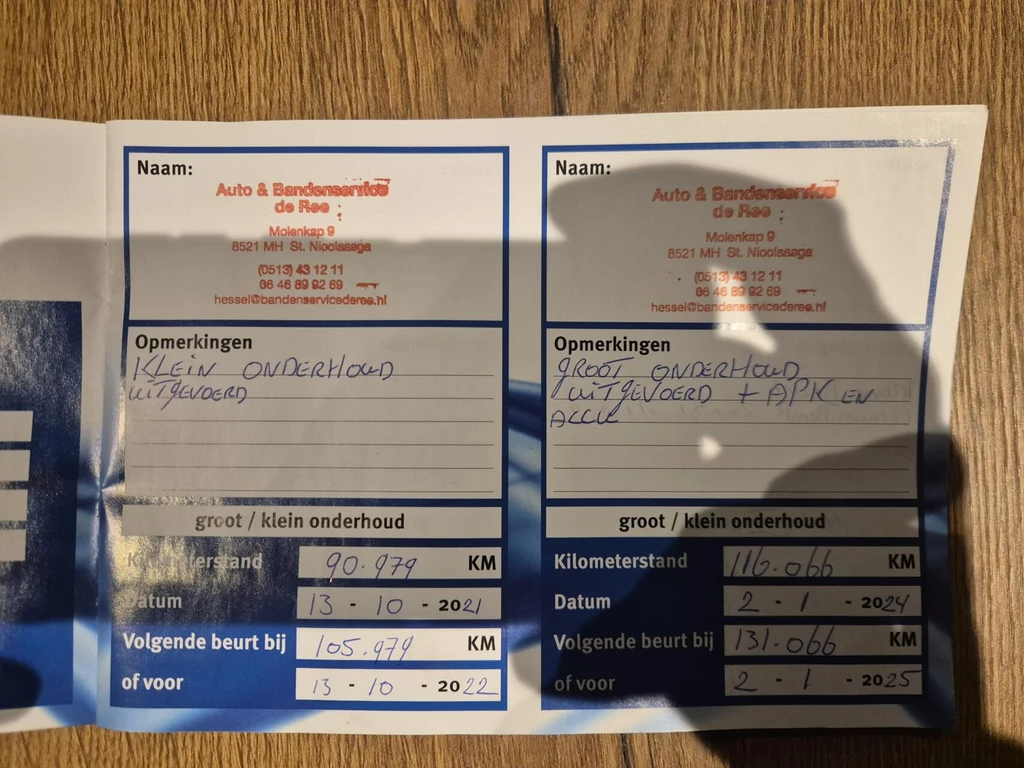 Naam:
Auto & Bandenservice
de Ree
Molenkap 9
8521 MH St. Nicolaasga
(0513) 43 12 11
06 46 89 92 69
hessel@bandenservicederee.nl
Opmerkingen
KLEIN ONDERHOUD
UITGEVOERD
groot / klein onderhoud
Kilometerstand 90.979 KM
Datum 13 - 10 - 2021
Volgende beurt bij 105.979 KM
of voor 13 - 10 - 2022
Naam:
Auto & Bandenservice
de Ree
Molenkap 9
8521 MH St. Nicolaasga
(0513) 43 12 11
06 46 89 92 69
hessel@bandenservicederee.nl
Opmerkingen
GROOT ONDERHOUD
UITGEVOERD + APK EN
ACCU
groot / klein onderhoud
Kilometerstand 116.066 KM
Datum 2 - 1 - 2024
Volgende beurt bij 131.066 KM
of voor 2 - 1 - 2025